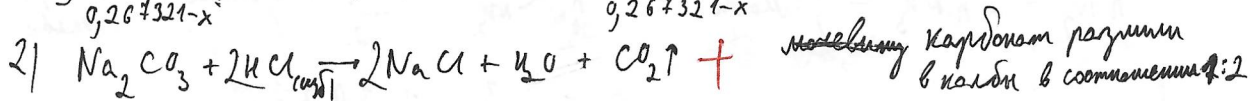 0,267321-x 0,267321-x
2) Na2CO3 + 2HCl(изб) → 2NaCl + H2O + CO2↑ + карбонат разлили
в колбы в соотношении 1:2